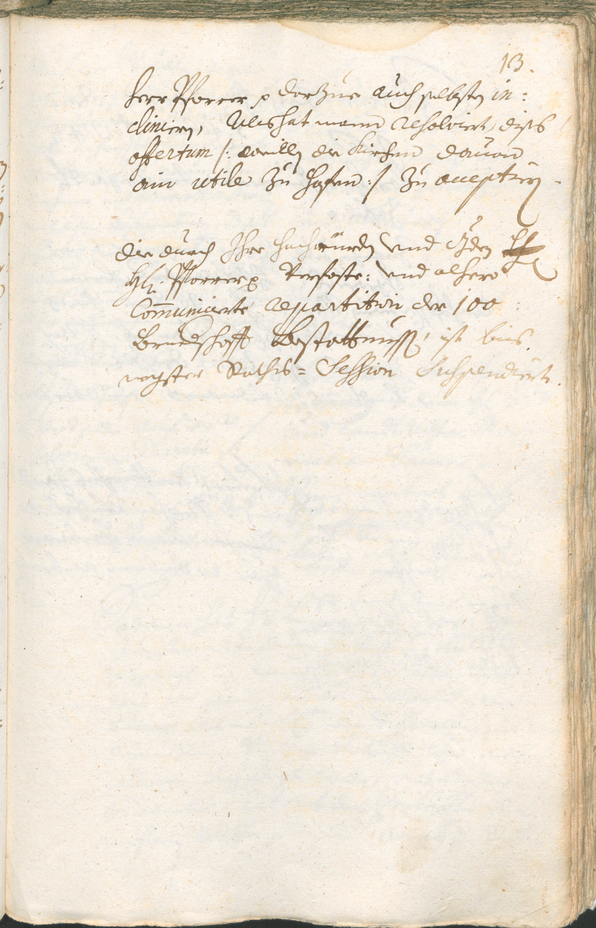 13.
Herr Pfarrer p darzue auch selbsten in:
cliniern, Als hat mann resolvirt, diss
offertum /: weillen die Kirchen dauon
ain utile zu hofen :/ zu acceptiern
die durch Ihro Hochwürden und
H: Pfarrer p verfaste: und alhero
Communicierte repartition der 100
Bruedschafft Bestattnuss, ist biss
negster Raths=Session Suspendiert.